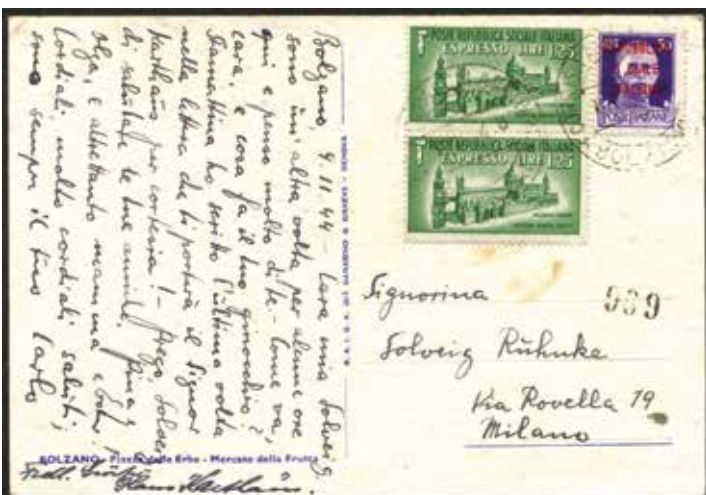 Bolzano, 9.11.44 – Cara mia Solveig.
sono un'altra volta per alcune ore
qui e penso molto di te. – Come va,
cara, e cosa fa il tuo ginocchio?
Stamattina ho scritto l'ultima volta
nella lettera che ti porterà il Signor
per cortesia! – Prego, Solveig
di salutare le tue amiche, Pina,
Olga, e altrettanto mamma e
Cordiali, molto cordiali saluti,
sono sempre il tuo Carlo
BOLZANO - Piazza delle Erbe - Mercato della Frutta
POSTE REPUBBLICA SOCIALE ITALIANA
ESPRESSO LIRE 1,25
POSTE REPUBBLICA SOCIALE ITALIANA
ESPRESSO LIRE 1,25
50
POSTE ITALIANE
Signorina
939
Solveig Rühnke
Via Rovella 19
Milano